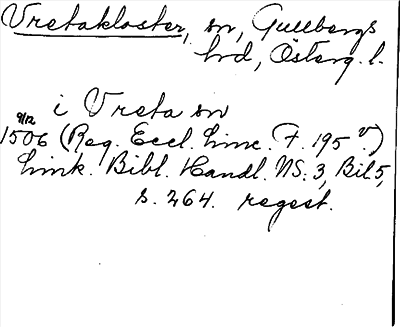 Vretakloster, sn, Gullbergs
hrd, Österg. l.
i Vreta sn
9/12
1506 (Reg. Eccl. Linc. F. 195 v.)
Link. Bibl. Handl. NS. 3, Bil 5,
s. 264. regest.